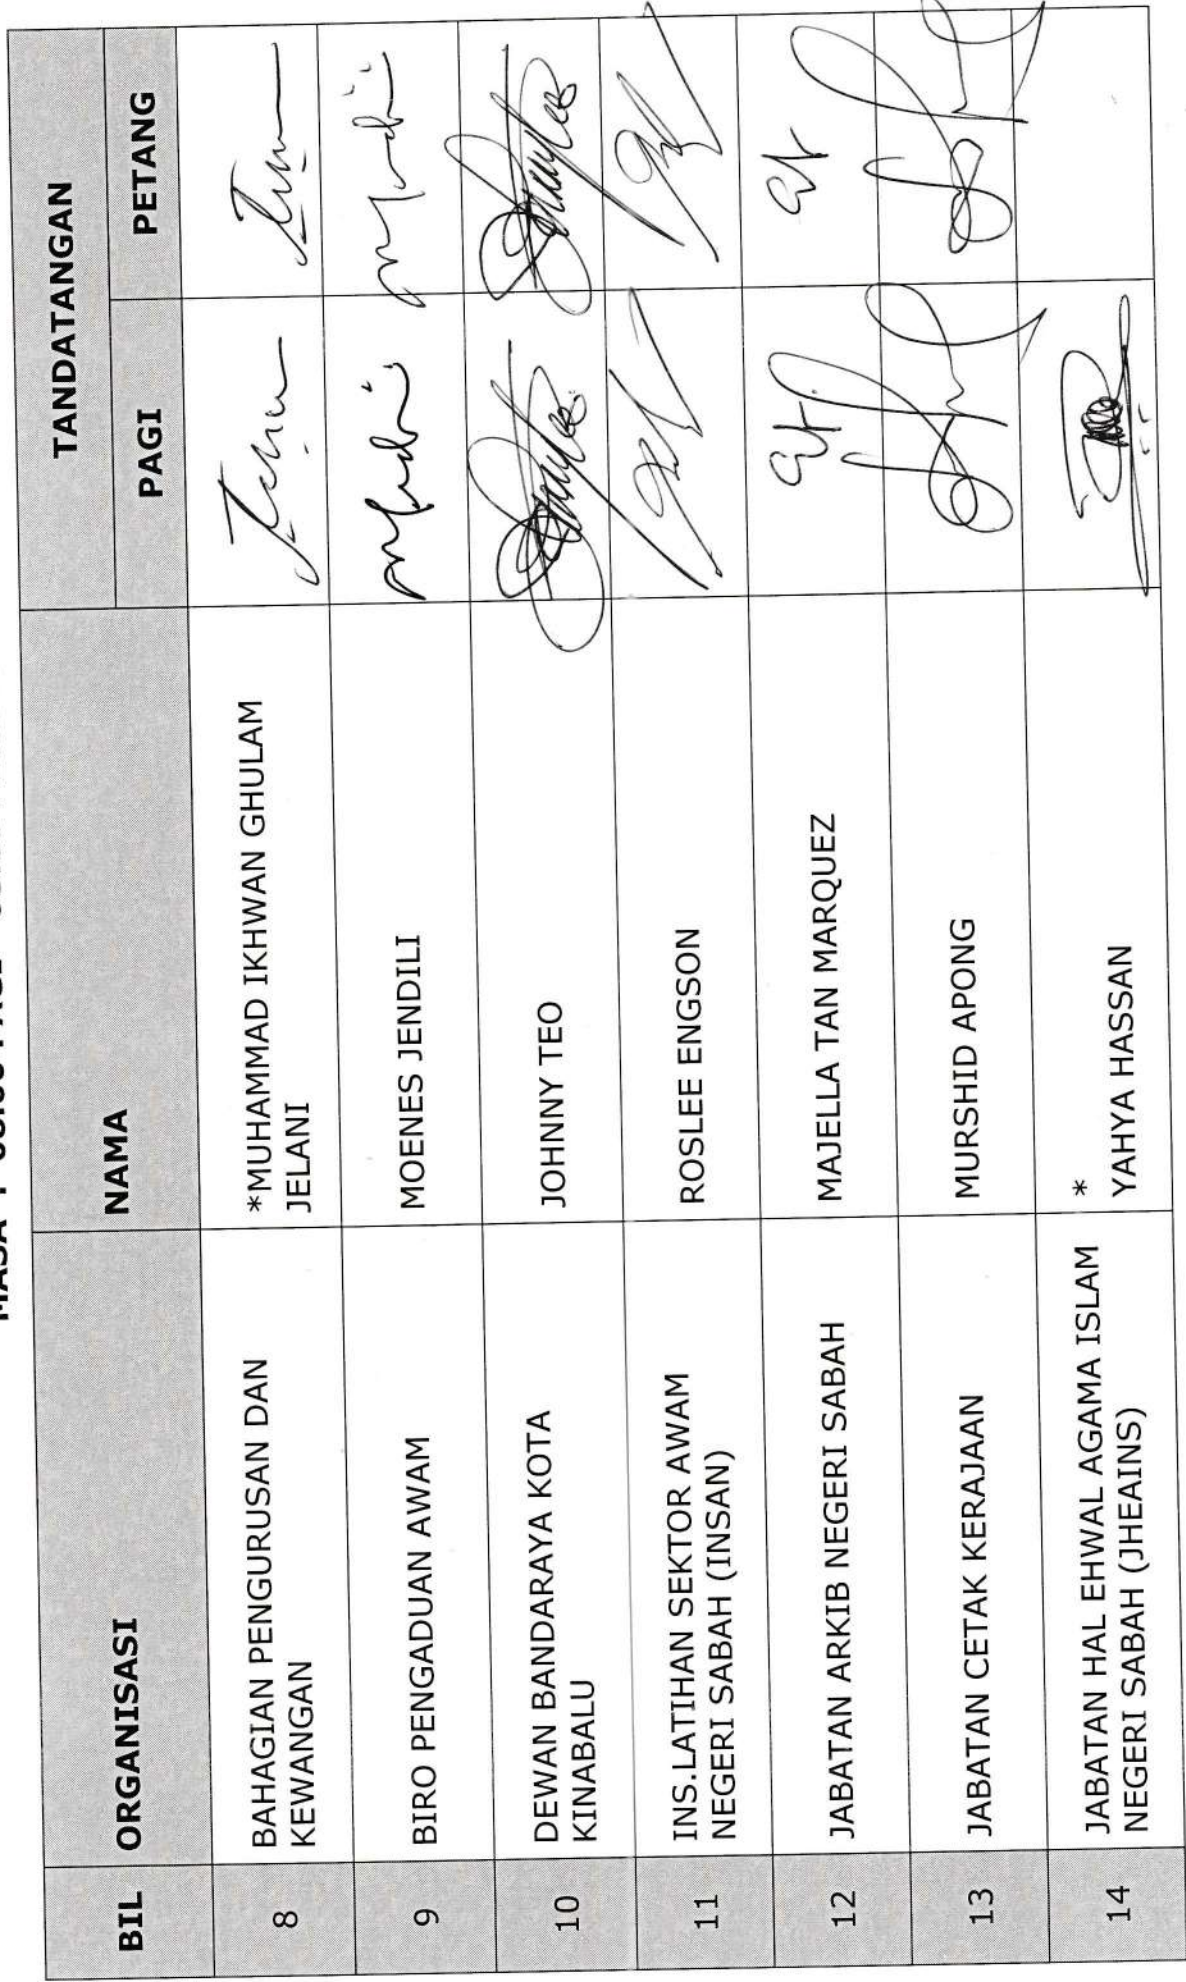 BIL ORGANISASI NAMA TANDATANGAN
PAGI PETANG
8 BAHAGIAN PENGURUSAN DAN KEWANGAN *MUHAMMAD IKHWAN GHULAM JELANI
9 BIRO PENGADUAN AWAM MOENES JENDILI
10 DEWAN BANDARAYA KOTA KINABALU JOHNNY TEO
11 INS.LATIHAN SEKTOR AWAM NEGERI SABAH (INSAN) ROSLEE ENGSON
12 JABATAN ARKIB NEGERI SABAH MAJELLA TAN MARQUEZ
13 JABATAN CETAK KERAJAAN MURSHID APONG
14 JABATAN HAL EHWAL AGAMA ISLAM NEGERI SABAH (JHEAINS) * YAHYA HASSAN